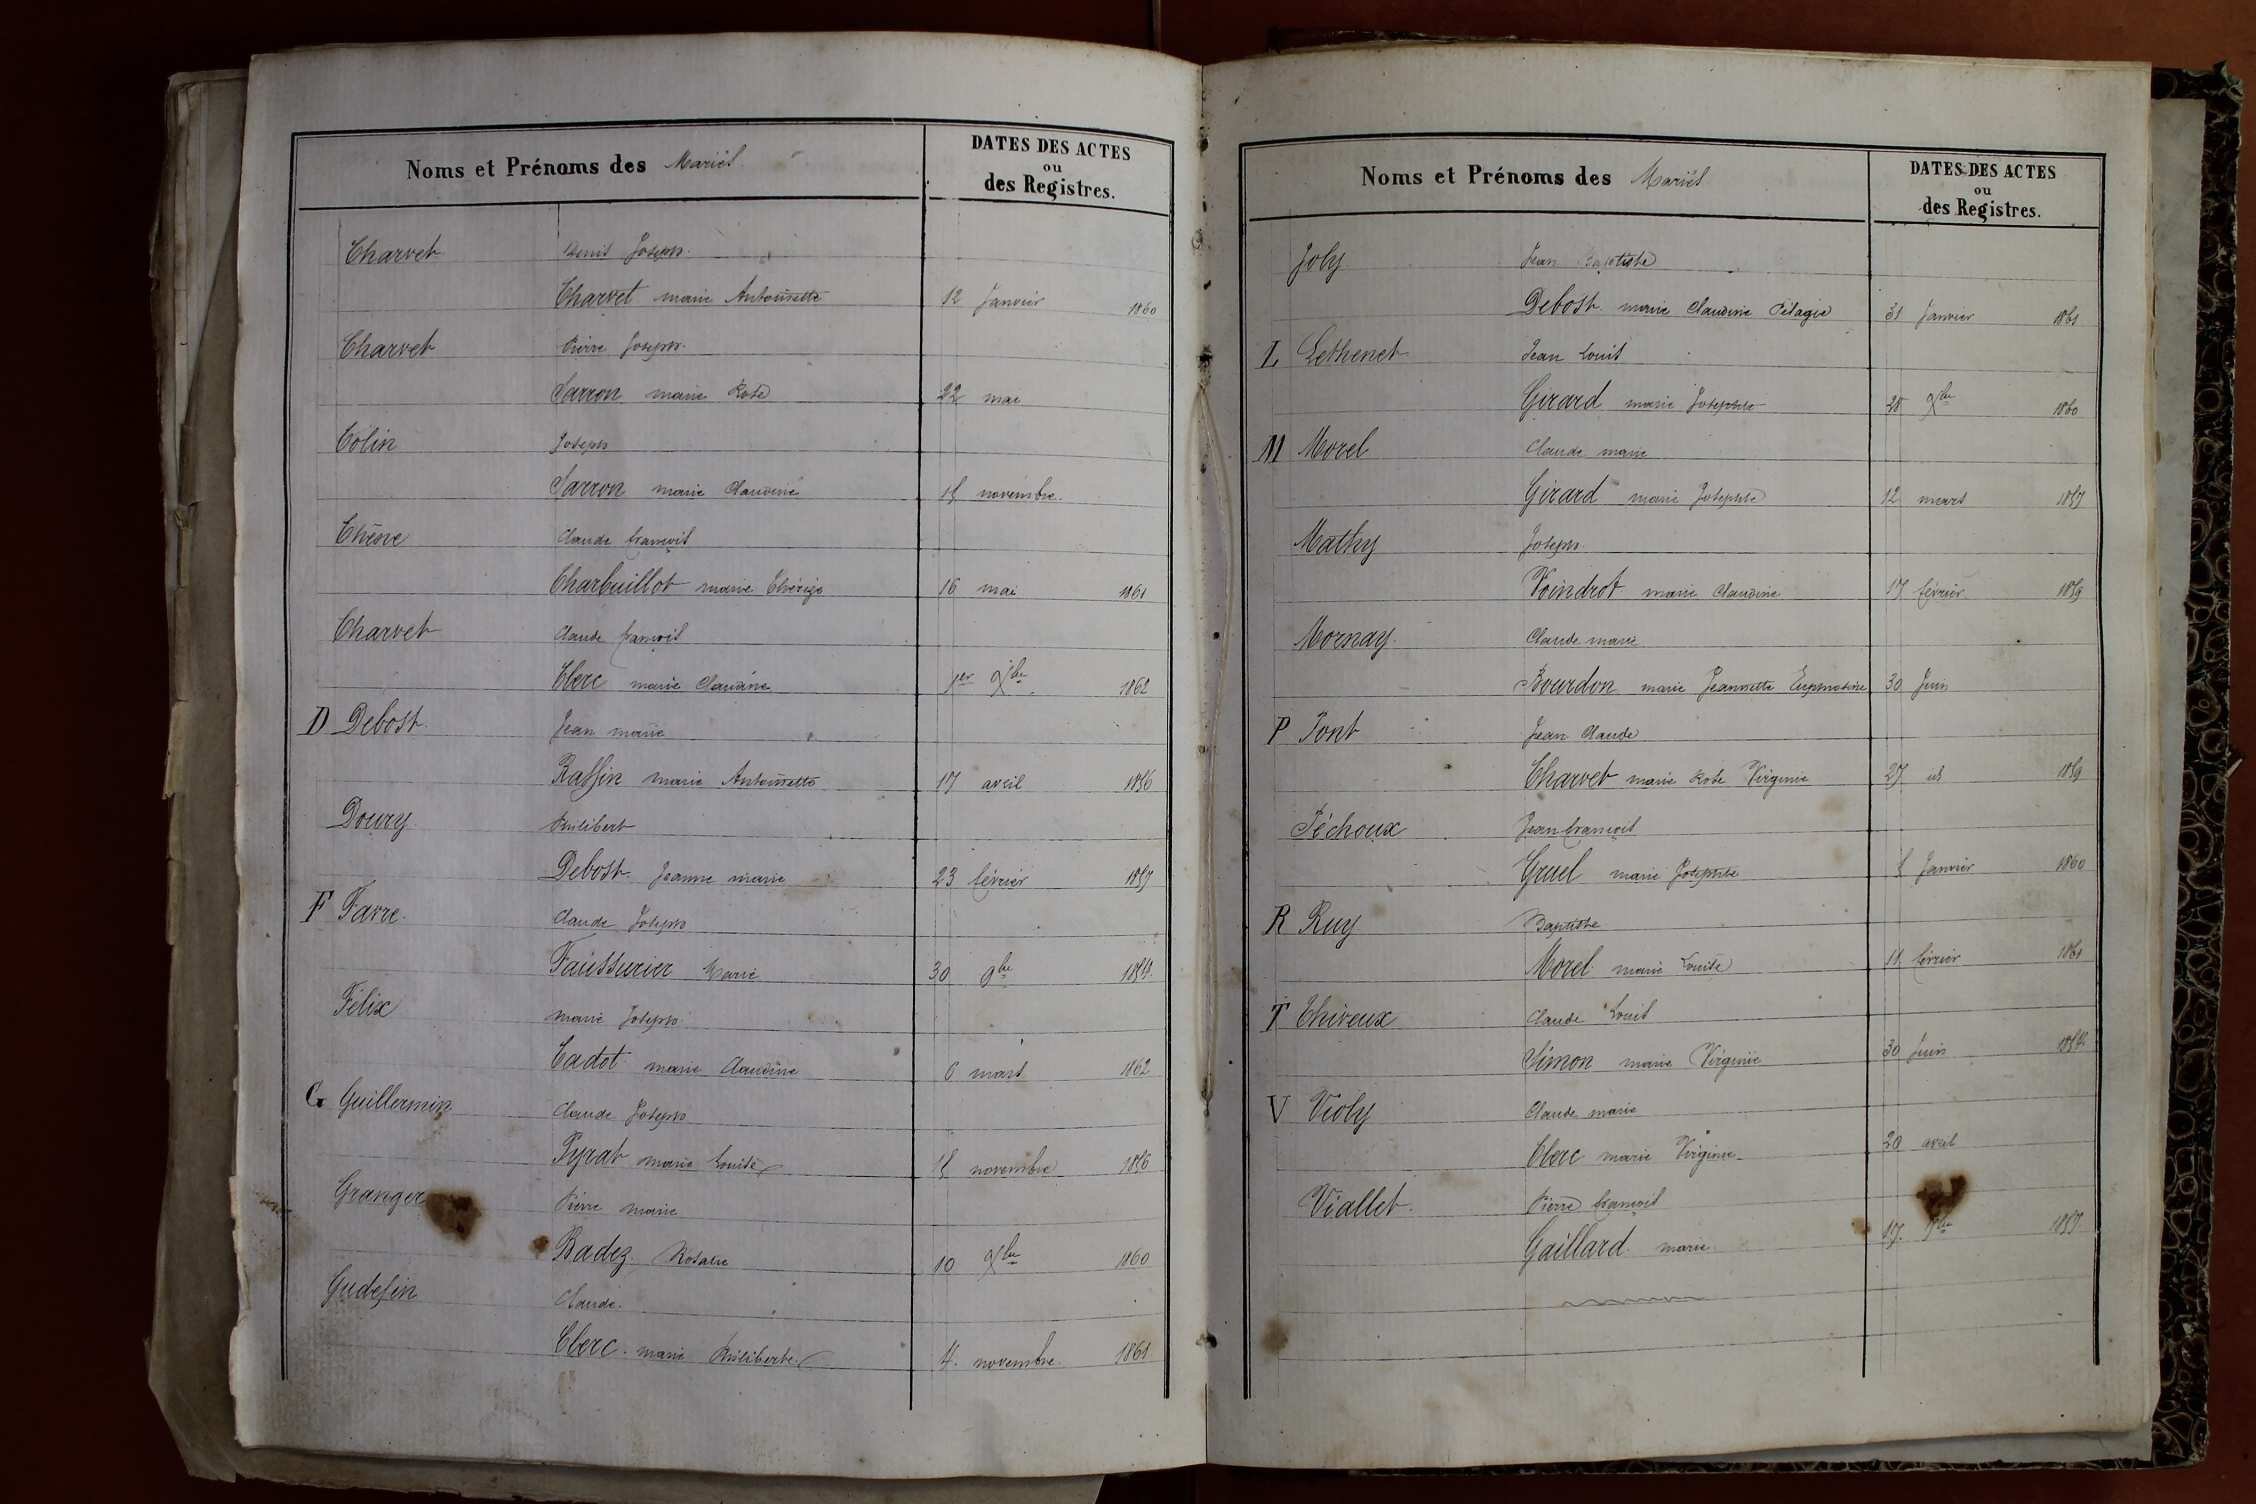 Noms et Prénoms des Mariés
DATES DES ACTES
ou
des Registres.
Charvet Denis Joseph
Charvet marie Antoinette 12 Janvier 1860
Charvet Pierre Joseph
Sarron marie Rose 22 mai
Colin Joseph
Sarron marie Claudine 15 novembre
Chêne Claude françois
Charbuillot marie Thérèse 16 mai 1861
Charvet Claude françois
Clerc marie Claudine 1er Xbre 1862
D Debost Jean marie
Raffin marie Antoinette 17 avril 1856
Doury Philibert
Debost Jeanne marie 23 février 1857
F Favre Claude Joseph
Faussurier Marie 30 9bre 1854
Félix marie Joseph
Cadot marie Claudine 6 mars 1862
G Guillermin Claude Joseph
Pyrat marie Louise 15 novembre 1856
Granger Pierre marie
Badez Rosalie 10 Xbre 1860
Gudefin Claude
Clerc marie Philiberte 4 novembre 1861
Noms et Prénoms des Mariés
DATES DES ACTES
ou
des Registres.
Joly Jean Baptiste
Debost marie Claudine Pélagie 31 Janvier 1861
L Lethenet Jean Louis
Girard marie Josephte 28 Xbre 1860
M Morel Claude marie
Girard marie Josephte 12 mars 1857
Mathy Joseph
Voindrot marie Claudine 17 février 1859
Mornay Claude marie
Bourdon marie Jeannette Euphrosine 30 Juin
P Pont Jean Claude
Charvet marie Rose Virginie 27 id 1859
Péchoux Jean françois
Gruel marie Josephte 5 Janvier 1860
R Ruy Baptiste
Morel marie Louise 11 février 1861
T Thiveux Claude Louis
Simon marie Virginie 30 Juin 1854
V Violy Claude marie
Clerc marie Virginie 20 avril
Viallet Pierre françois
Gaillard marie 17 1857